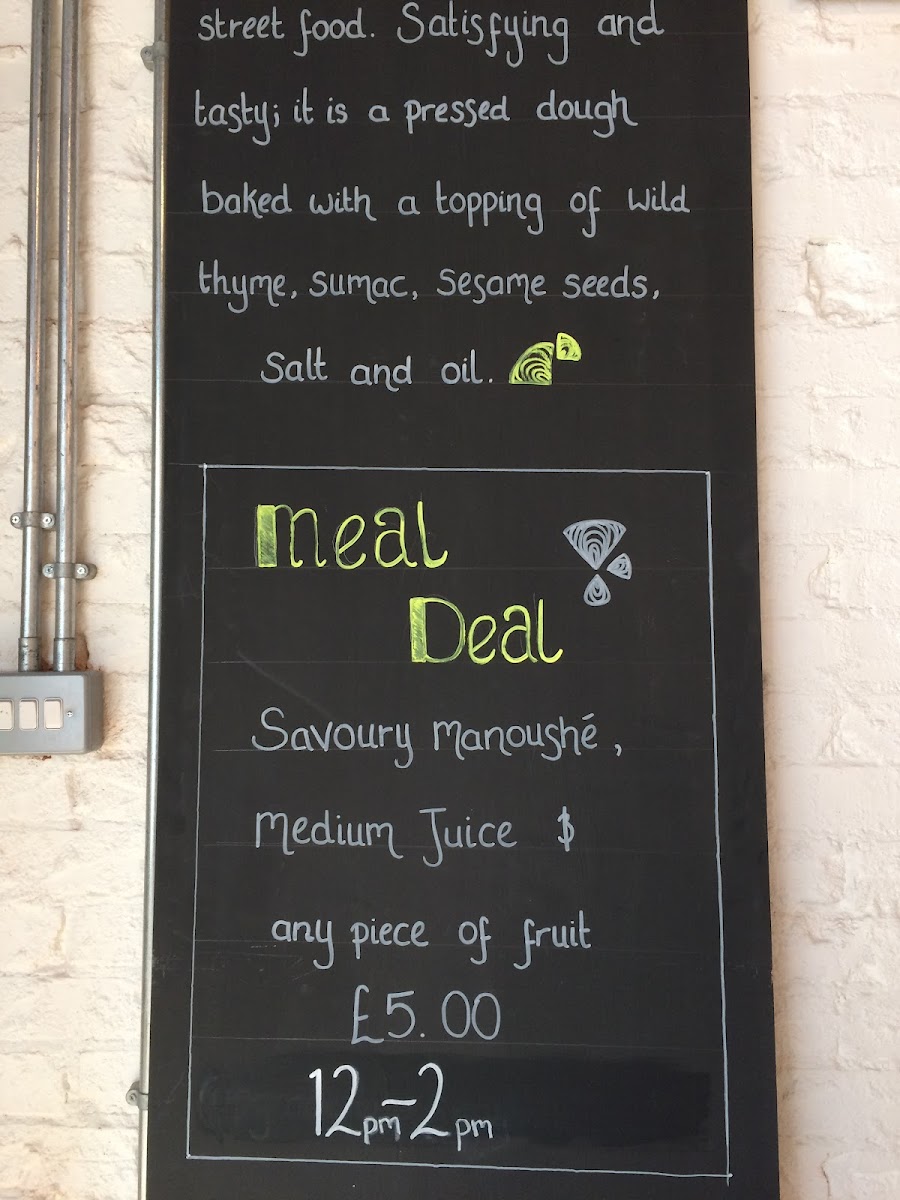 street food. Satisfying and
tasty; it is a pressed dough
baked with a topping of wild
thyme, sumac, sesame seeds,
salt and oil.
Meal
Deal
Savoury Manoushé,
Medium Juice $
any piece of fruit
£5.00
12pm-2pm